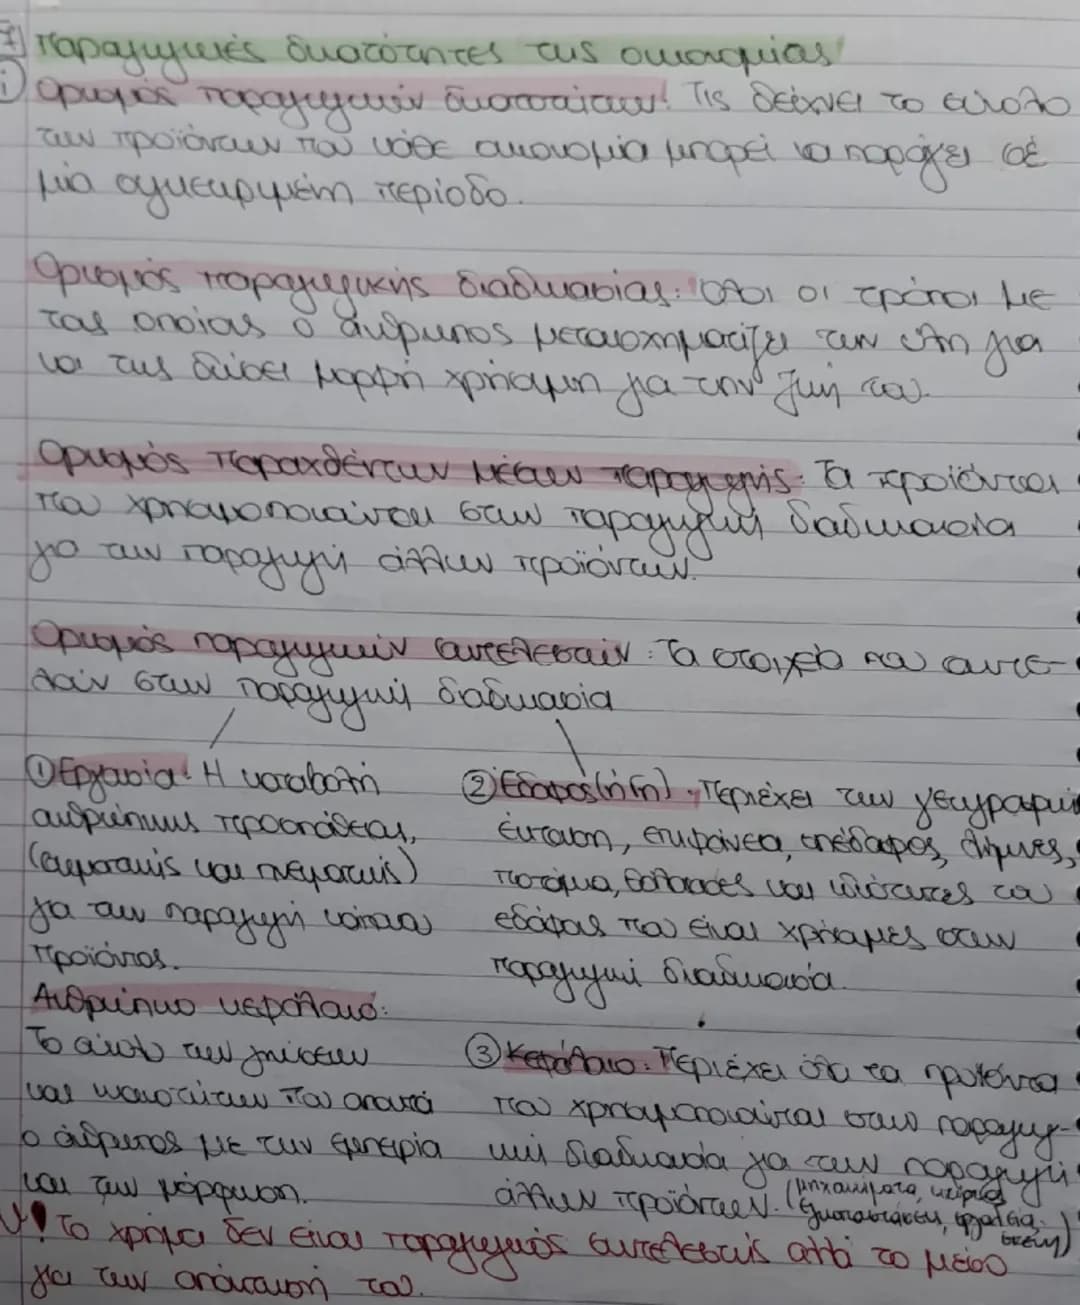 7 Παραγωγικές δυνατότητες της οικονομίας!
i Ορισμός παραγωγικών δυνατοτήτων: Τις δείχνει το σύνολο
των προϊόντων που κάθε οικονομία μπορεί να παράγει σε
μία συγκεκριμένη περίοδο.
Ορισμός παραγωγικής διαδικασίας: Όλοι οι τρόποι με
τους οποίους ο άνθρωπος μετασχηματίζει την ύλη για
να της δώσει μορφή χρήσιμη για την ζωή του.
Ορισμός παραχθέντων μέσων παραγωγής: Τα προϊόντα
που χρησιμοποιούνται στην παραγωγική διαδικασία
για την παραγωγή άλλων προϊόντων.
Ορισμός παραγωγικών συντελεστών: Τα στοιχεία που συντε-
λούν στην παραγωγική διαδικασία
① Εργασία: Η καταβολή
ανθρώπινης προσπάθειας,
(σωματικής και πνευματικής)
για την παραγωγή κάποιου
προϊόντος.
Ανθρώπινο κεφάλαιο:
Το σύνολο των γνώσεων
και ικανοτήτων που αποκτά
ο άνθρωπος με την εμπειρία
και την μόρφωση.
② Έδαφος (ή Γη): Περιέχει την γεωγραφική
έκταση, επιφάνεια, υπέδαφος, λίμνες,
ποτάμια, θάλασσες και ιδιότητες του
εδάφους που είναι χρήσιμες στην
παραγωγική διαδικασία.
③ Κεφάλαιο: Περιέχει όλα τα προϊόντα
που χρησιμοποιούνται στην παραγωγ-
ική διαδικασία για την παραγωγή
άλλων προϊόντων. (μηχανήματα, κτίρια,
εγκαταστάσεις, εργαλεία,
σκεύη)
! Το χρήμα δεν είναι παραγωγικός συντελεστής αλλά το μέσο
για την απόκτησή του.